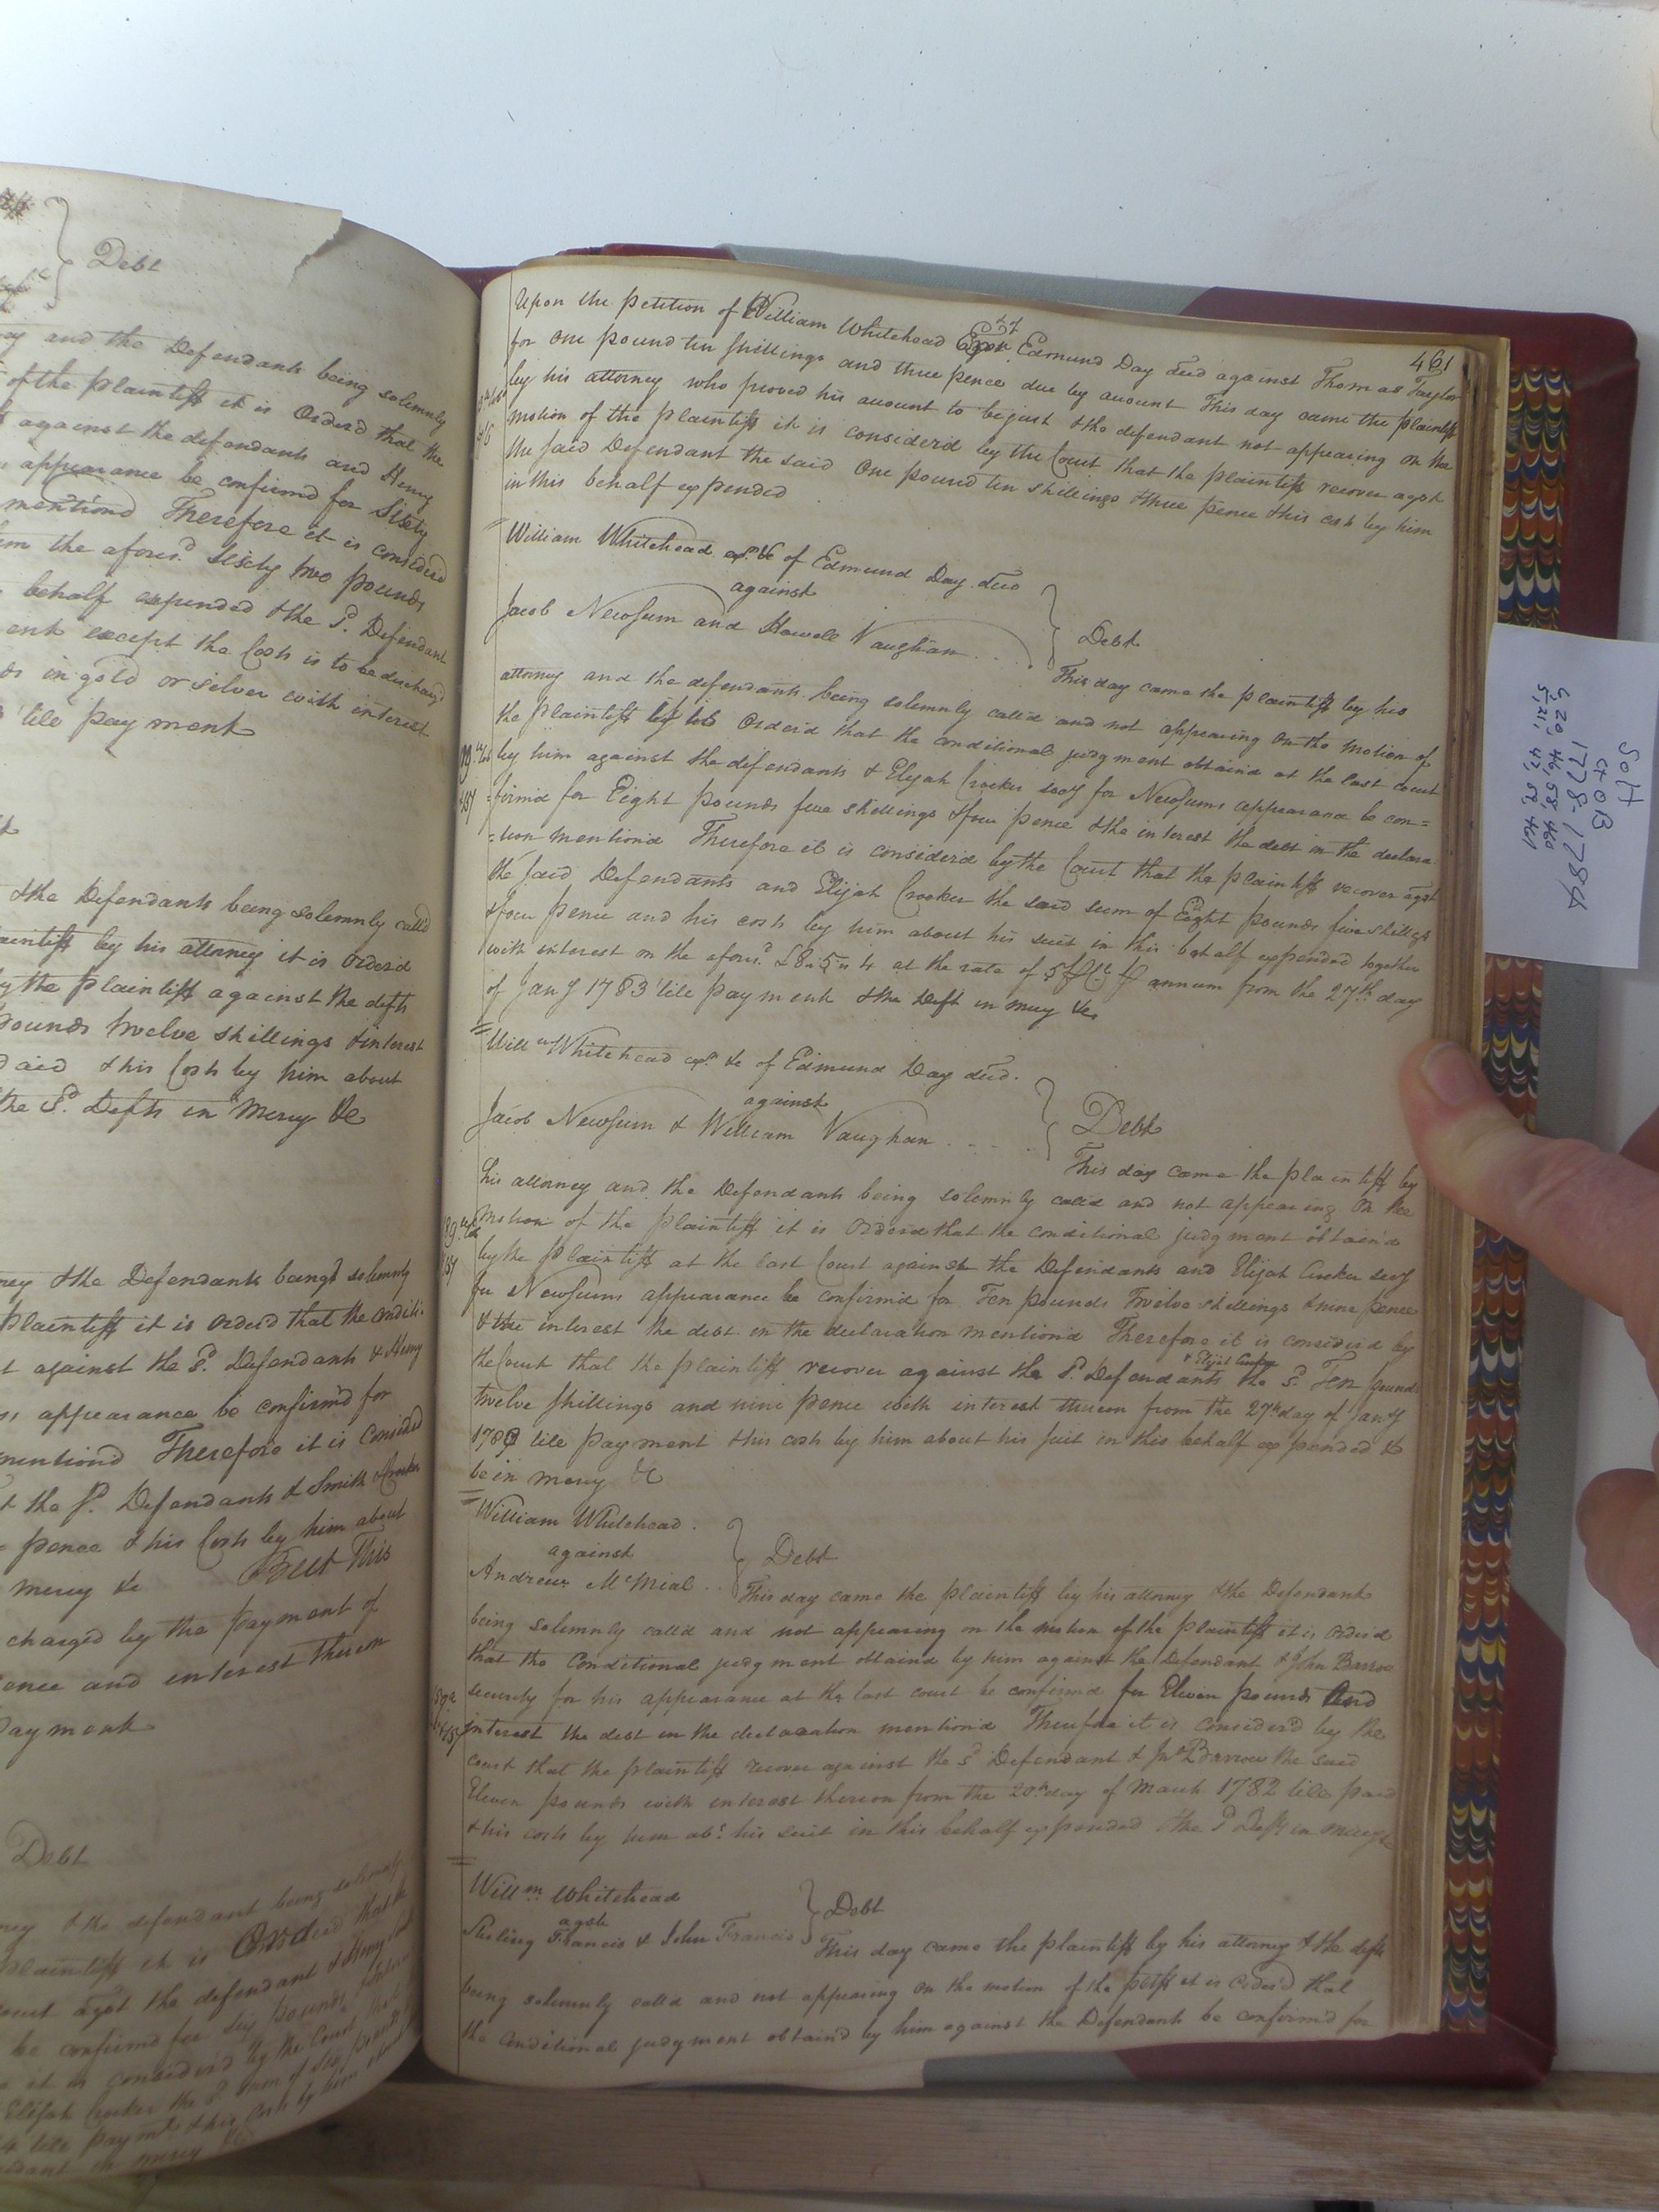 Debt
and the Defendants being solemnly
of the plaintiff it is Orderd that the
against the defendants and Henry
appearance be confirmd for Sixty
mentiond Therefore it is considerd
the afores.d Sixty two pounds
behalf expended & the S.d Defendant
except the Costs is to be dischargd
in gold or silver with interest
till payment
& the Defendants being solemnly calld
plaintiff by his attorney it is orderd
by the plaintiff against the defts
pounds twelve shillings & interest
said & his Costs by him about
the S.d Defts in Mercy &c
& the Defendants being solemnly
Plaintiff it is orderd that the conditi-
against the S.d Defendants & Henry
appearance be confirmd for
mentiond Therefore it is considerd
the S.d Defendants & Smith Crocker
pence & his Costs by him about
mercy &c But This
charged by the payment of
pence and interest thereon
payment
Debt
& the defendant being solemnly
plaintiff it is Orderd that the
court agst the defendant & Henry
be confirmd for Six pounds
it is considerd by the Court that
Elijah Crocker the S.d sum of Six pounds
till paymt & his Costs by him about
461
Upon the petition of William Whitehead Exor of Edmund Day decd against Thomas Taylor
for one pound ten shillings and three pence due by account This day came the plaintiff
by his attorney who proved his account to be just & the defendant not appearing on the
motion of the plaintiff it is considerd by the Court that the plaintiff recover agst
the said Defendant the said One pound ten shillings & three pence & his costs by him
in this behalf expended
William Whitehead exr &c of Edmund Day decd
against
Jacob Newsum and Howell Vaughan . . . .
Debt
This day came the plaintiff by his
attorney and the defendants being solemnly calld and not appearing On the motion of
the plaintiff it is Orderd that the conditional judgment obtaind at the last court
by him against the defendants & Elijah Crocker secy for Newsums appearance be con=
=firmd for Eight pounds five shillings & four pence & the interest the debt in the declara
=tion mentiond Therefore it is considerd by the Court that the plaintiff recover agst
the said Defendants and Elijah Crocker the said sum of Eight pounds five shillings
& four pence and his costs by him about his suit in this behalf expended together
with interest on the afores.d £8..5..4 at the rate of 5 P Ct P annum from the 27th day
of Jany 1783 till payment & the Deft in mercy &c
Will m Whitehead exr &c of Edmund Day decd.
against
Jacob Newsum & William Vaughan . . . .
Debt
This day came the plaintiff by
his attorney and the Defendants being solemnly calld and not appearing On the
motion of the plaintiff it is Orderd that the conditional judgment obtaind
by the plaintiff at the last Court against the Defendants and Elijah Crocker secy
for Newsums appearance be confirmd for Ten pounds Twelve shillings & nine pence
& the interest the debt in the declaration mentiond Therefore it is considerd by
the Court that the plaintiff recover against the S.d Defendants & Elijah Crocker the S.d Ten pounds
twelve shillings and nine pence with interest thereon from the 27th day of Jany
till payment & his costs by him about his suit in this behalf expended &c
be in mercy &c
William Whitehead .
against
Andrew McMial . .
Debt
This day came the plaintiff by his attorney & the Defendant
being solemnly calld and not appearing on the motion of the plaintiff it is Orderd
that the Conditional judgment obtaind by him against the Defendant & John Barrow
security for his appearance at the last court be confirmd for Eleven pounds And
interest the debt in the declaration mentiond Therefore it is considerd by the
court that the plaintiff recover against the S.d Defendant & Jno Barrow the said
Eleven pounds with interest thereon from the 20th day of March 1782 till paid
& his costs by him abt his suit in this behalf expended & the S.d Deft in mercy &c
Will m Whitehead
agst
Sterling Francis & John Francis
Debt
This day came the plaintiff by his attorney & the defts
being solemnly calld and not appearing on the motion of the pltff it is orderd that
the Conditional judgment obtaind by him against the Defendants be confirmd for
SoH
Ct OB
1778-1784
5,20, 46, 58, 460
5,21, 47, 59, 461